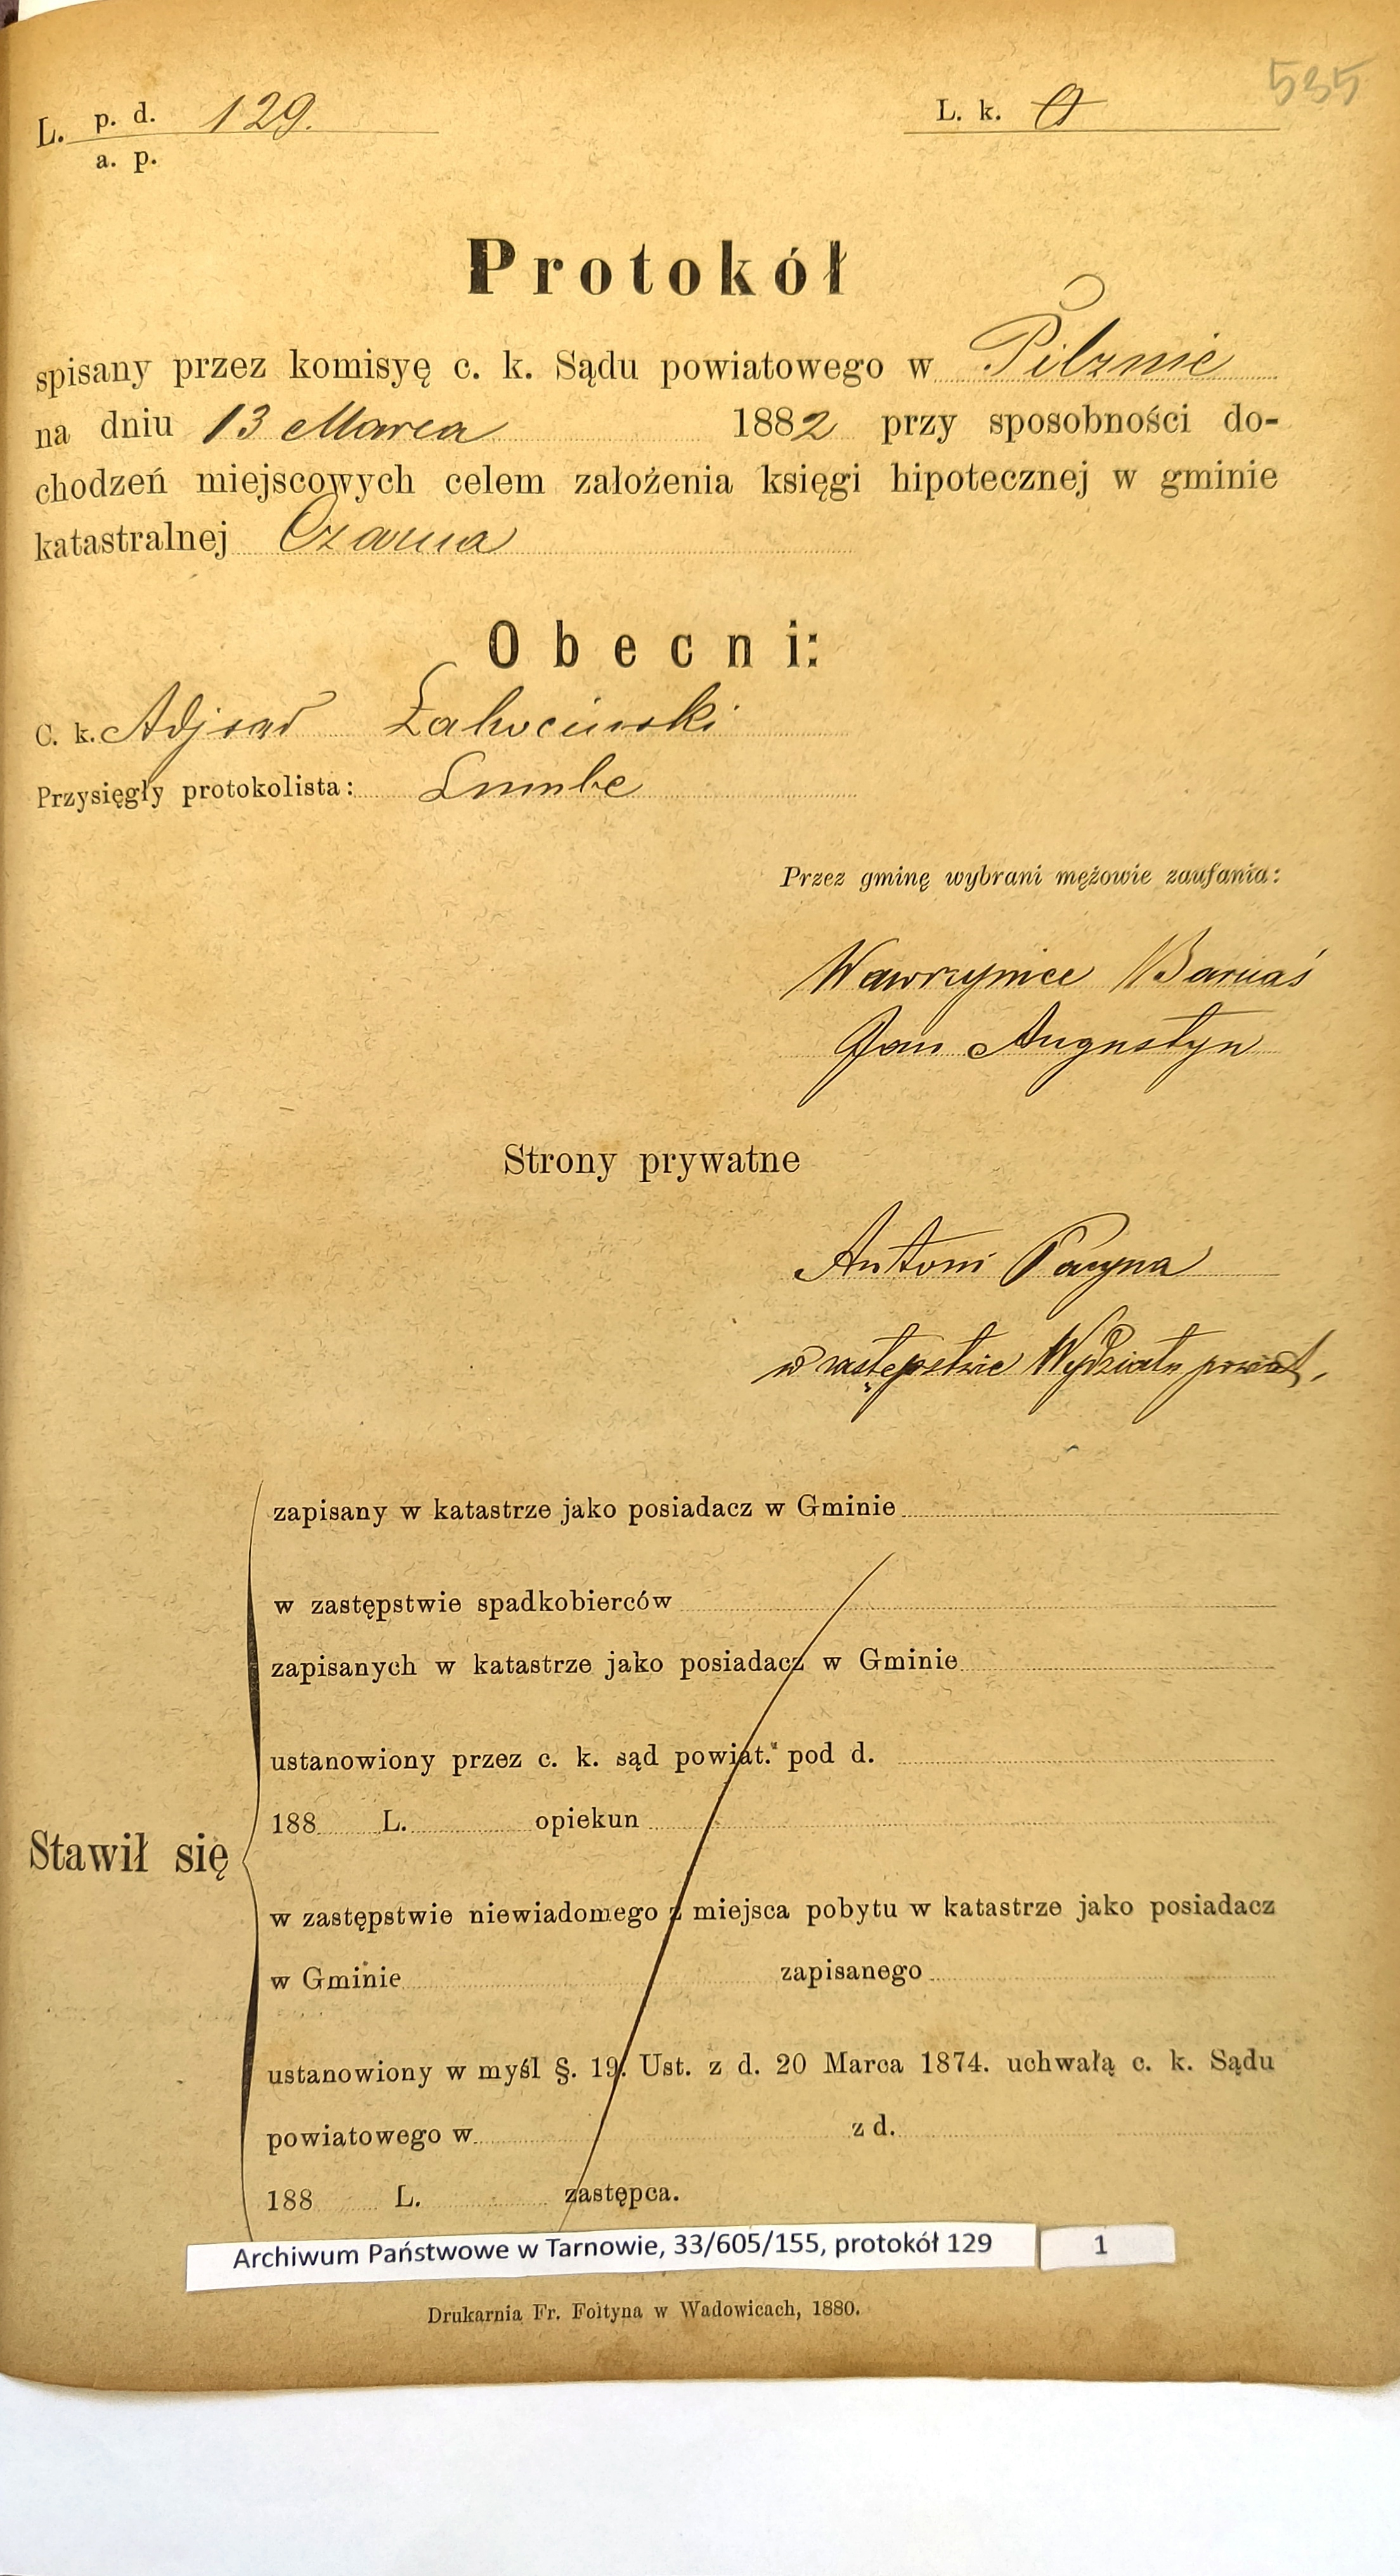 535
L. p. d. 129. L. k. 0
a. p.
Protokół
spisany przez komisyę c. k. Sądu powiatowego w Pilznie
na dniu 13 Marca 1882 przy sposobności do-
chodzeń miejscowych celem założenia księgi hipotecznej w gminie
katastralnej Czarna
Obecni:
C. k. Adj sąd
Przysięgły protokolista:
Przez gminę wybrani mężowie zaufania:
Wawrzyniec Barnaś
Jan Augustyn
Strony prywatne
Antoni
w zastępstwie Wydziału powiat.
zapisany w katastrze jako posiadacz w Gminie
w zastępstwie spadkobierców
zapisanych w katastrze jako posiadacz w Gminie
ustanowiony przez c. k. sąd powiat. pod d.
188 L. opiekun
Stawił się
w zastępstwie niewiadomego z miejsca pobytu w katastrze jako posiadacz
w Gminie zapisanego
ustanowiony w myśl §. 19. Ust. z d. 20 Marca 1874. uchwałą c. k. Sądu
powiatowego w z d.
188 L. zastępca.
Archiwum Państwowe w Tarnowie, 33/605/155, protokół 129 1
Drukarnia Fr. Foltyna w Wadowicach, 1880.